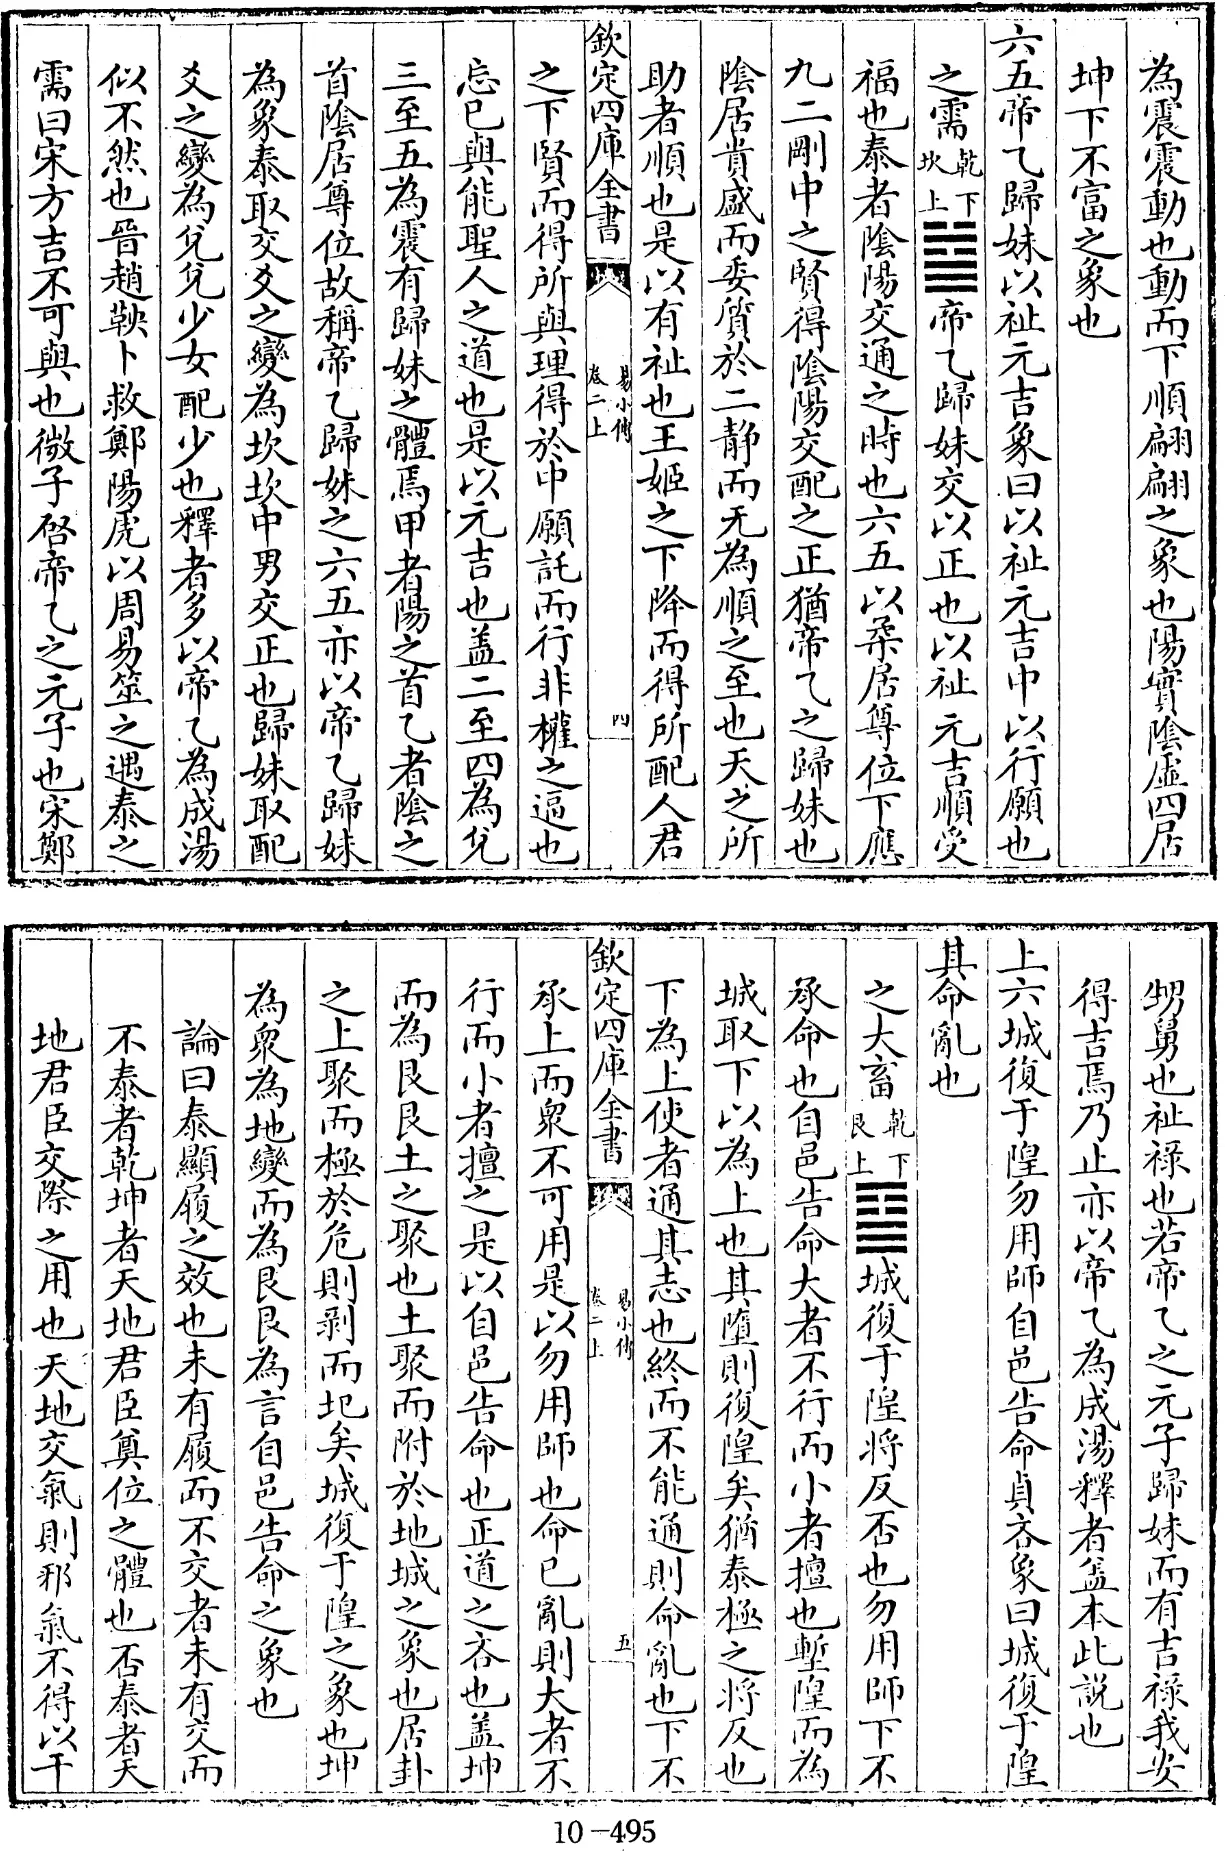 為震震動也動而下順翩翩之象也陽實陰虛四居
坤下不富之象也
六五帝乙歸妹以祉元吉象曰以祉元吉中以行願也
之需乾下坎上䷄帝乙歸妹交以正也以祉元吉順受
福也泰者陰陽交通之時也六五以柔居尊位下應
九二剛中之賢得陰陽交配之正猶帝乙之歸妹也
陰居貴盛而委質於二静而无為順之至也天之所
助者順也是以有祉也王姬之下降而得所配人君
欽定四庫全書
易小傳
卷二上
四
之下賢而得所與理得於中願託而行非權之逼也
忘已與能聖人之道也是以元吉也盖二至四為兌
三至五為震有歸妹之體焉甲者陽之首乙者陰之
首陰居尊位故稱帝乙歸妹之六五亦以帝乙歸妹
為象泰取交爻之變為坎坎中男交正也歸妹取配
爻之變為兌兌少女配少也釋者多以帝乙為成湯
似不然也晉趙鞅卜救鄭陽虎以周易筮之遇泰之
需曰宋方吉不可與也微子啓帝乙之元子也宋鄭
甥舅也祉禄也若帝乙之元子歸妹而有吉禄我安
得吉焉乃止亦以帝乙為成湯釋者盖本此説也
上六城復于隍勿用師自邑告命貞吝象曰城復于隍
其命亂也
之大畜乾下艮上䷙城復于隍将反否也勿用師下不
承命也自邑告命大者不行而小者擅也塹隍而為
城取下以為上也其墮則復隍矣猶泰極之将反也
下為上使者通其志也終而不能通則命亂也下不
欽定四庫全書
易小傳
卷二上
五
承上而衆不可用是以勿用師也命已亂則大者不
行而小者擅之是以自邑告命也正道之吝也盖坤
而為艮艮土之聚也土聚而附於地城之象也居卦
之上聚而極於危則剥而圮矣城復于隍之象也坤
為衆為地變而為艮艮為言自邑告命之象也
論曰泰顯履之效也未有履而不交者未有交而
不泰者乾坤者天地君臣奠位之體也否泰者天
地君臣交際之用也天地交氣則邪氣不得以干
10-495